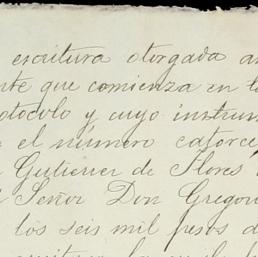 escritura otorgada a
nte que comienza en l
otocolo y cuyo instrum
el número catorce
Gutierrez de Flores
Señor Don Gregor
los seis mil pesos d